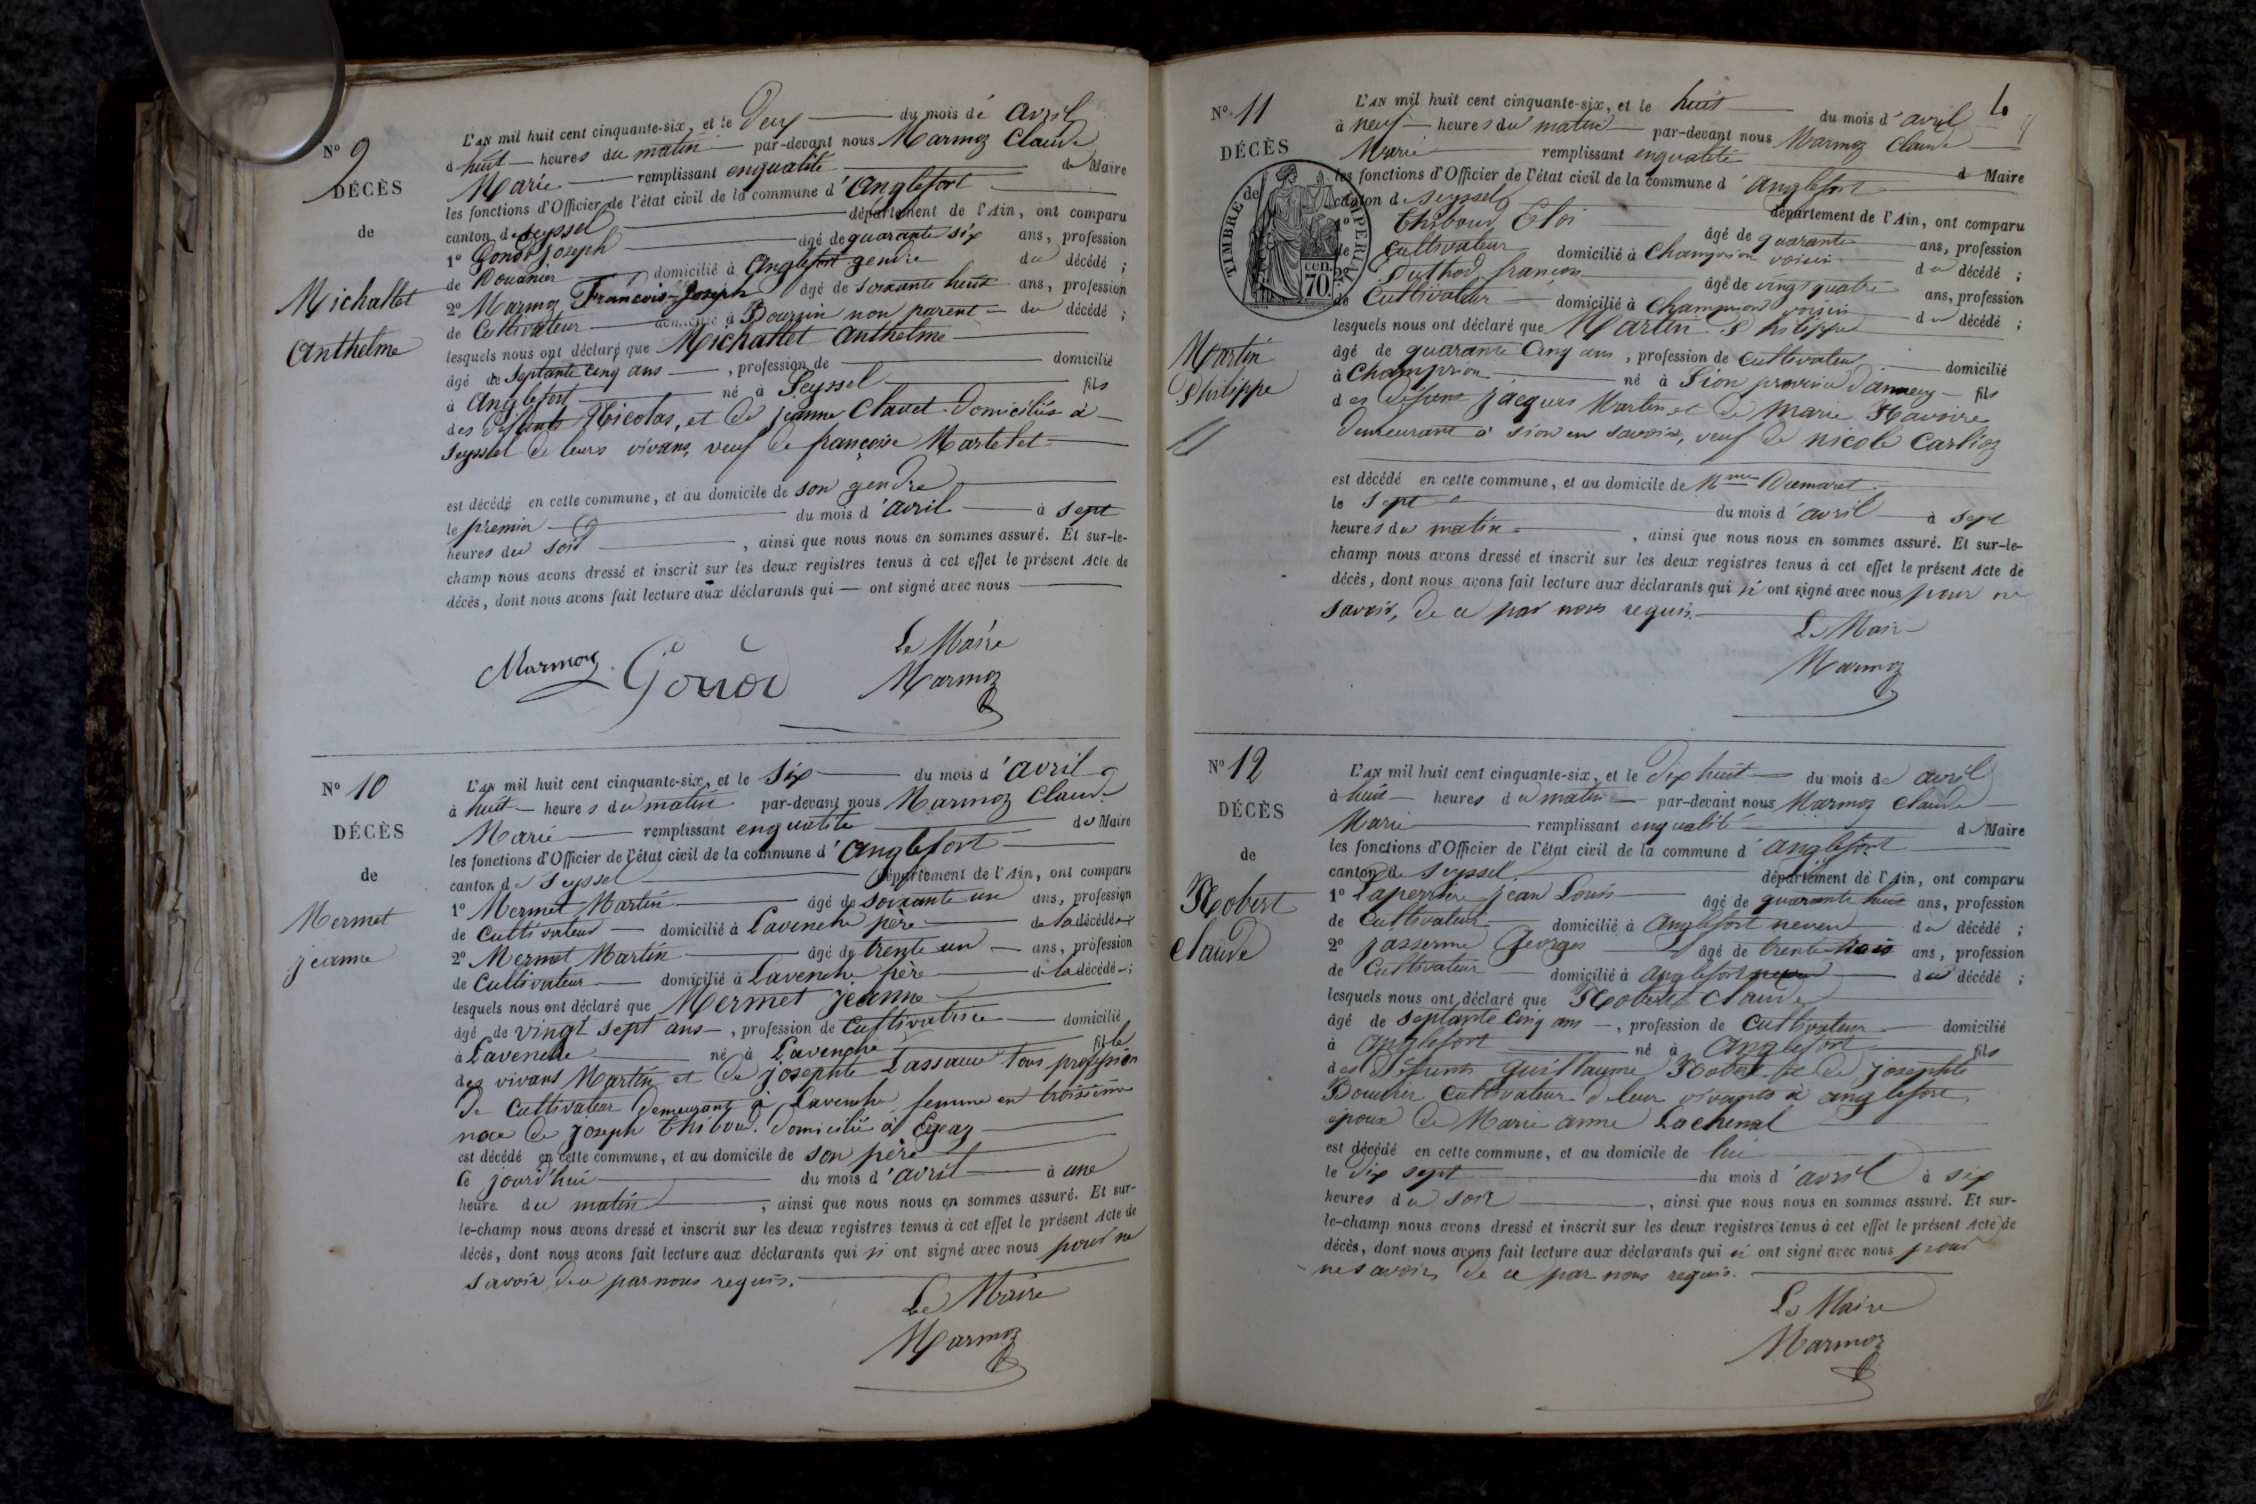 N° 9
DÉCÈS
de
Michallet
Anthelme
L'AN mil huit cent cinquante-six, et le deux du mois de avril
à huit heures du matin par-devant nous Marmoz Claude
Marie remplissant en qualité de Maire
les fonctions d'Officier de l'état civil de la commune d'Anglefort
canton de Seyssel département de l'Ain, ont comparu
1° Gonod Joseph âgé de quarante six ans, profession
de Douanier domicilié à Anglefort gendre du décédé ;
2° Marmoz François-Joseph âgé de soixante huit ans, profession
de Cultivateur domicilié à Boursin non parent du décédé ;
lesquels nous ont déclaré que Michallet Anthelme
âgé de septante cinq ans, profession de domicilié
à Anglefort né à Seyssel fils
des défunts Nicolas, et de jeanne Clavet domiciliés à
Seyssel de leurs vivans, veuf de françoise Martelet
est décédé en cette commune, et au domicile de son gendre
le premier du mois d'avril à sept
heures du soir, ainsi que nous nous en sommes assuré. Et sur-le-
champ nous avons dressé et inscrit sur les deux registres tenus à cet effet le présent Acte de
décès, dont nous avons fait lecture aux déclarants qui ont signé avec nous
Le Maire
Marmoz Gonod Marmoz
N° 10
DÉCÈS
de
Mermet
jeanne
L'AN mil huit cent cinquante-six, et le six du mois d'avril
à huit heures du matin par-devant nous Marmoz Claude
Marie remplissant en qualité du Maire
les fonctions d'Officier de l'état civil de la commune d'Anglefort
canton de Seyssel département de l'Ain, ont comparu
1° Mermet Martin âgé de soixante un ans, profession
de Cultivateur domicilié à Lavenche père de la décédée ;
2° Mermet Martin âgé de trente un ans, profession
de Cultivateur domicilié à Lavenche frère de la décédé ;
lesquels nous ont déclaré que Mermet jeanne
âgé de vingt sept ans, profession de Cultivatrice domicilié
à Lavenche né à Lavenche fille
des vivans Martin et de josephte Lassaue tous profession
de Cultivateur demeurant à Lavenche, femme en troisième
noce de joseph Thiboud domicilié à
est décédé en cette commune, et au domicile de son père
ce jourd'hui du mois d'avril à une
heure du matin, ainsi que nous nous en sommes assuré. Et sur-
le-champ nous avons dressé et inscrit sur les deux registres tenus à cet effet le présent Acte de
décès, dont nous avons fait lecture aux déclarants qui n'ont signé avec nous pour ne
savoir de ce par nous requis.
Le Maire
Marmoz
4
N° 11
DÉCÈS
TIMBRE IMPERIAL
70 cen.
Martin
Philippe
11
L'AN mil huit cent cinquante-six, et le huit du mois d'avril
à neuf heures du matin par-devant nous Marmoz Claude
Marie remplissant en qualité d Maire
les fonctions d'Officier de l'état civil de la commune d'Anglefort
canton d Seyssel département de l'Ain, ont comparu
1° Thiboud Eloi âgé de quarante ans, profession
de Cultivateur domicilié à Champrion voisin du décédé ;
2° Duthod françois âgé de vingt quatre ans, profession
de Cultivateur domicilié à Champrion voisin du décédé ;
lesquels nous ont déclaré que Martin Philippe
âgé de quarante cinq ans, profession de Cultivateur domicilié
à Champrion né à Sion province d'annecy fils
des défunts jacques Martin et de Marie Havoire
demeurant à sion en savoie, veuf de nicole Carlioz
est décédé en cette commune, et au domicile de Mme Dumaret
le sept du mois d'avril à sept
heures du matin, ainsi que nous nous en sommes assuré. Et sur-le-
champ nous avons dressé et inscrit sur les deux registres tenus à cet effet le présent Acte de
décès, dont nous avons fait lecture aux déclarants qui n'ont signé avec nous pour ne
savoir, de ce par nous requis.
Le Maire
Marmoz
N° 12
DÉCÈS
de
Robert
Claude
L'AN mil huit cent cinquante-six, et le dix huit du mois de avril
à huit heures du matin par-devant nous Marmoz Claude
Marie remplissant en qualité de Maire
les fonctions d'Officier de l'état civil de la commune d'Anglefort
canton de Seyssel département de l'Ain, ont comparu
1° Laperrine jean Louis âgé de quarante huit ans, profession
de Cultivateur domicilié à Anglefort neveu du décédé ;
2° Jasserme Georges âgé de trente trois ans, profession
de Cultivateur domicilié à Anglefort neveu du décédé ;
lesquels nous ont déclaré que Robert Claude
âgé de septante cinq ans, profession de Cultivateur domicilié
à Anglefort né à Anglefort fils
des défunts Guillaume Robert et de josephte
Bouvier Cultivateur de leur vivants à anglefort
époux de Marie anne Lachenal
est décédé en cette commune, et au domicile de lui
le dix sept du mois d'avril à six
heures du soir, ainsi que nous nous en sommes assuré. Et sur-
le-champ nous avons dressé et inscrit sur les deux registres tenus à cet effet le présent Acte de
décès, dont nous avons fait lecture aux déclarants qui n'ont signé avec nous pour
ne savoir, de ce par nous requis.
Le Maire
Marmoz